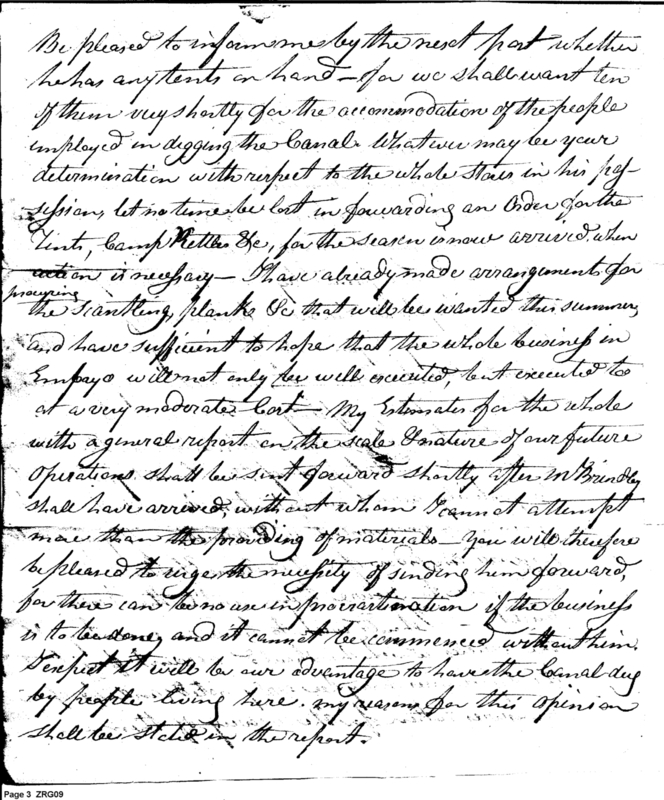 Be pleased to inform me by the next post whether
he has any tents on hand — for we shall want ten
of them very shortly for the accommodation of the people
employed in digging the Canal. Whatever may be your
determination with respect to the whole stores in his pos-
-session, let no time be lost in forwarding an Order for the
Tents, Camp Kettles &c, for the season is now arrived when
action is necessary — I have already made arrangements for
procuring
the scantling, planks &c that will be wanted this summer,
and have sufficient to hope that the whole business in
Embryo will not only be well executed, but executed too
at a very moderate Cost — My Estimates for the whole
with a general report on the scale & nature of our future
Operations shall be sent forward shortly after Mr Brindley
shall have arrived, without whom I cannot attempt
more than the providing of materials — You will therefore
be pleased to urge the necessity of sending him forward,
for there can be no use in procrastination if the business
is to be done, and it cannot be commenced without him.
I expect it will be our advantage to have the Canal dug
by people living here. my reasons for this opinion
shall be stated in the report.
Page 3 ZRG09